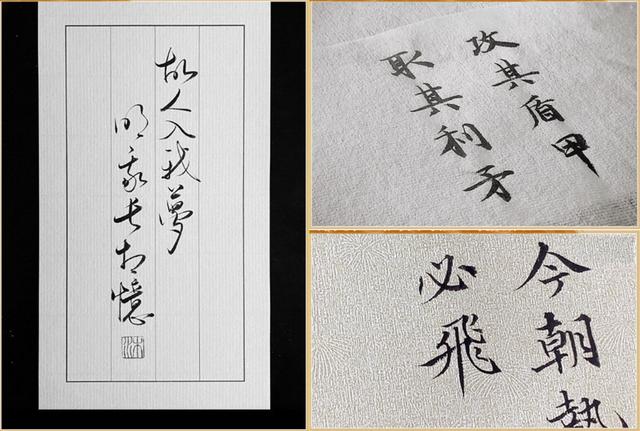 故人入我夢
明我长相憶
攻其盾甲
取其利矛
今朝執
必飛